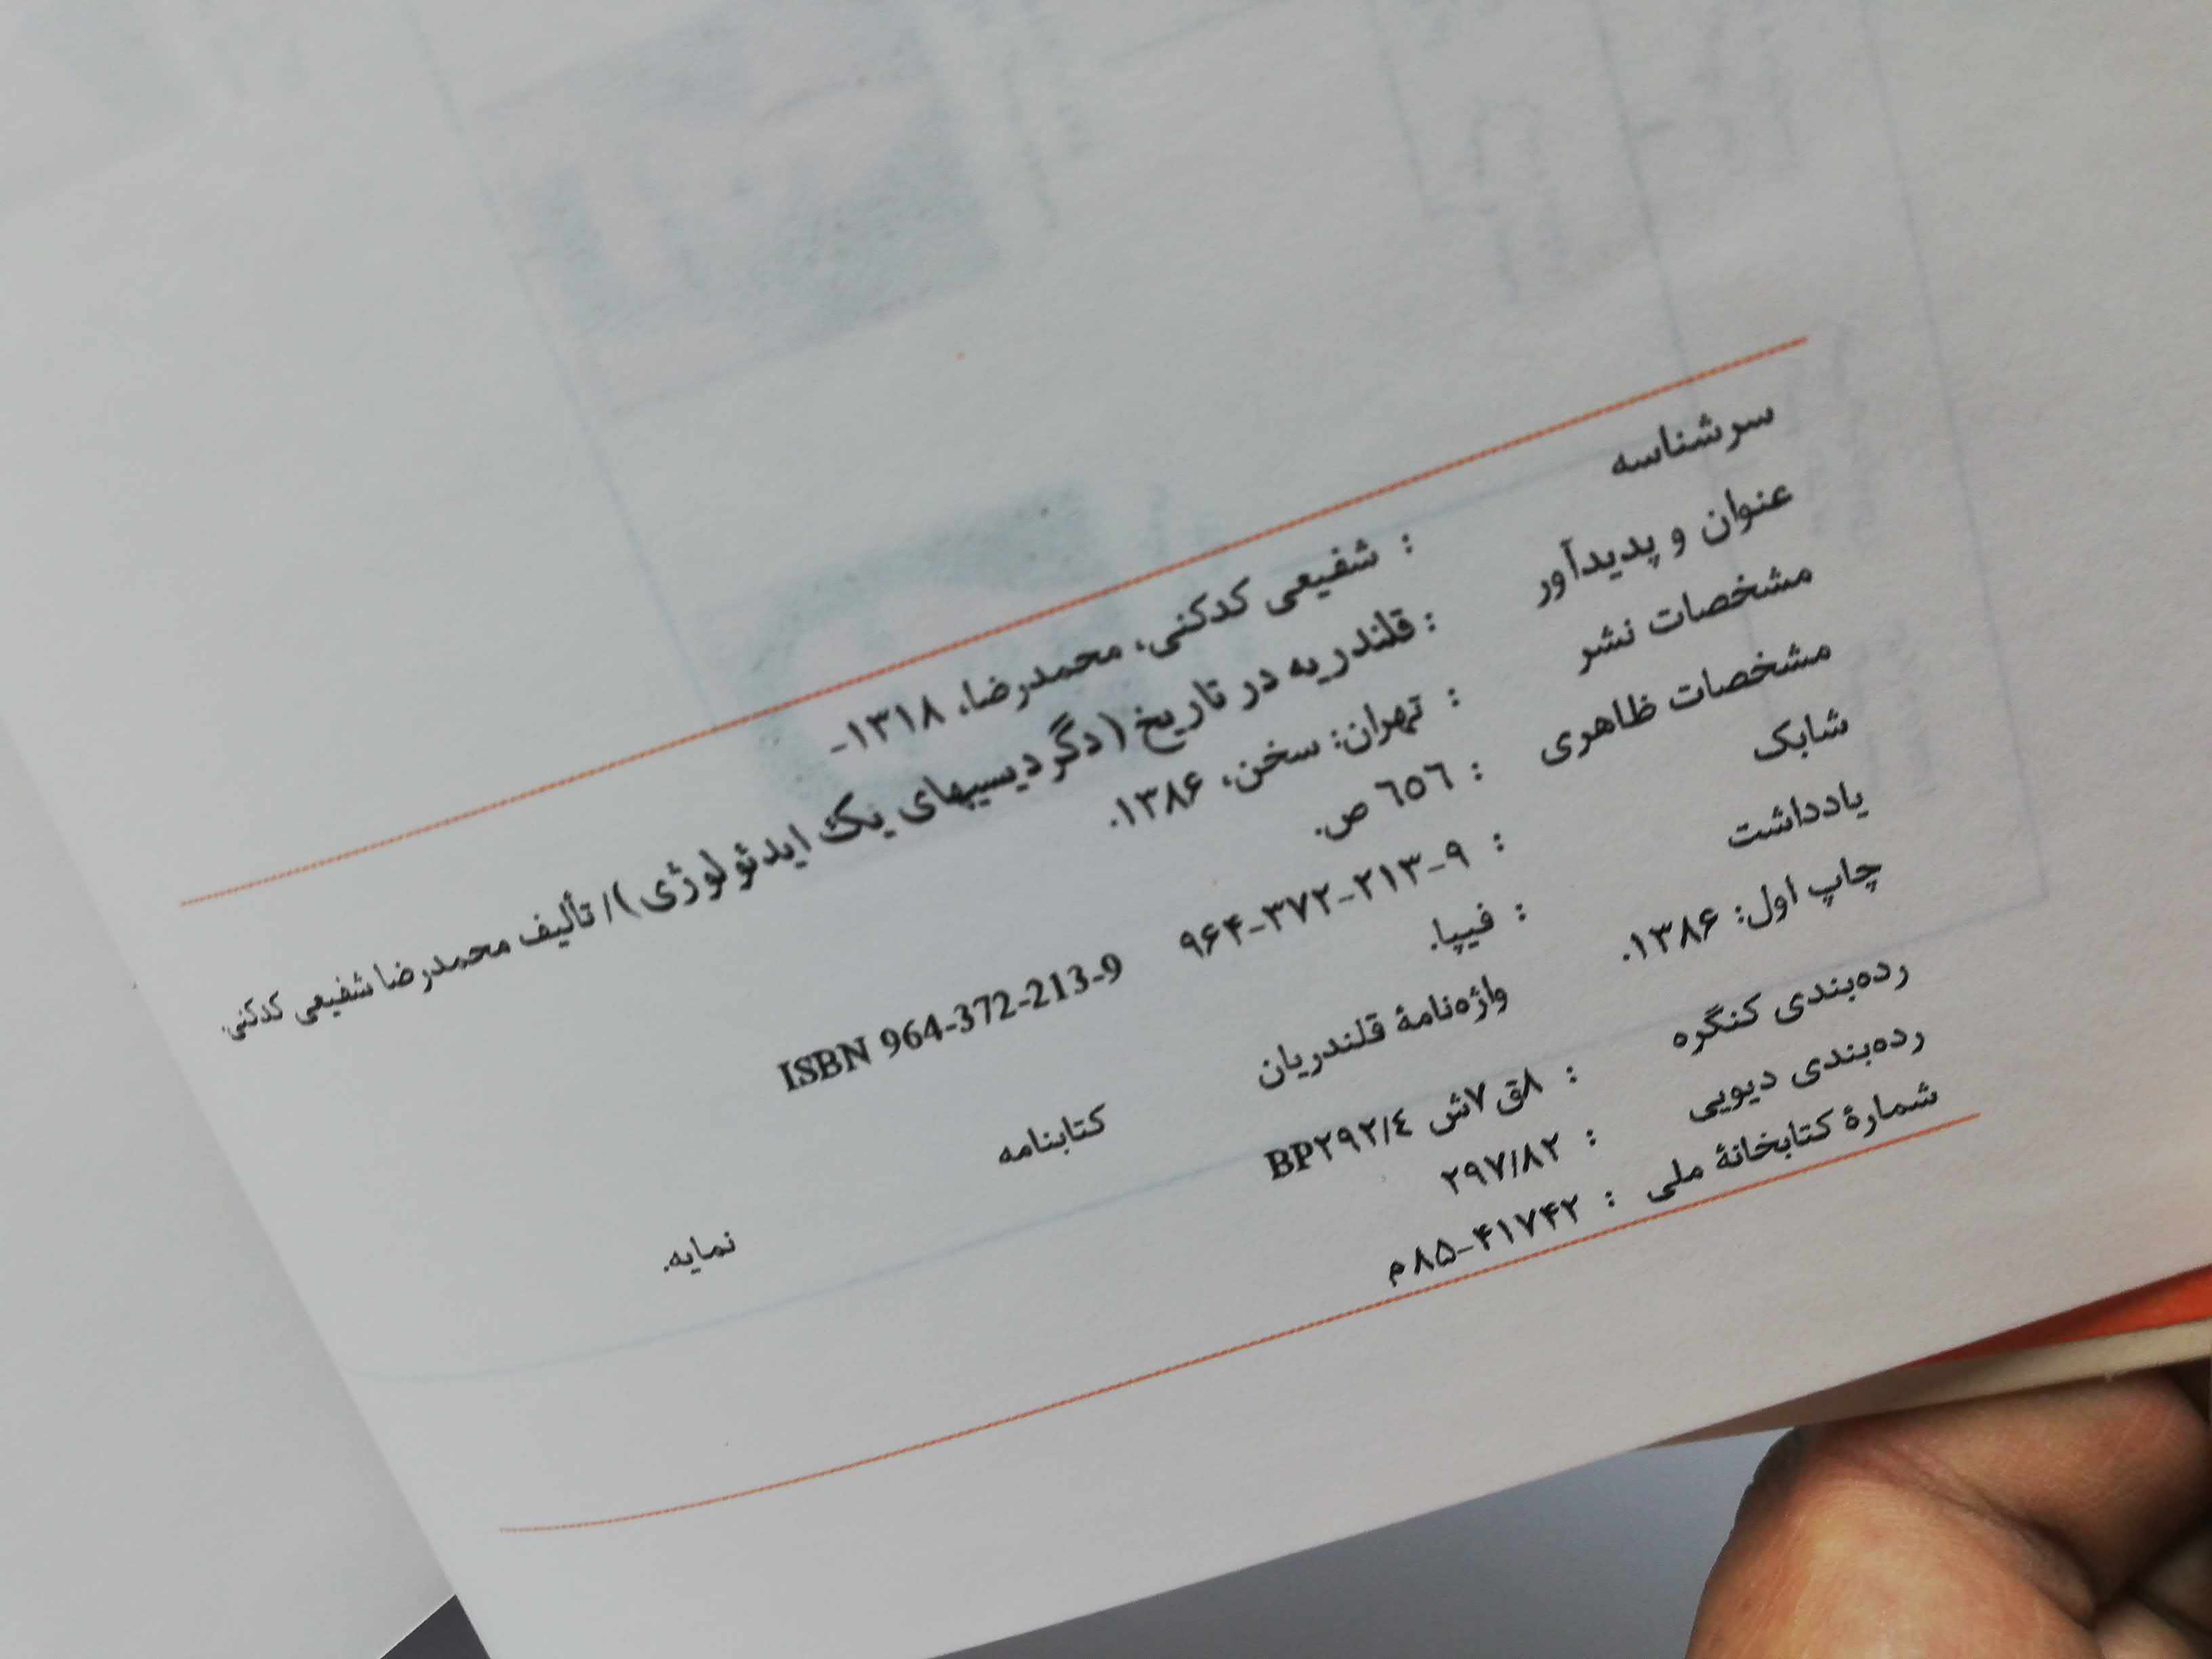 سرشناسه : شفیعی کدکنی، محمدرضا، ۱۳۱۸-
عنوان و پدیدآور : قلندریه در تاریخ (دگردیسیهای یک ایدئولوژی)/ تألیف محمدرضا شفیعی کدکنی.
مشخصات نشر : تهران: سخن، ۱۳۸۶.
مشخصات ظاهری : ٦٥٦ ص.
شابک : ۹-۲۱۳-۳۷۲-۹۶۴ ISBN 964-372-213-9
یادداشت : فیپا.
چاپ اول: ۱۳۸۶. واژه‌نامهٔ قلندریان کتابنامه نمایه.
رده‌بندی کنگره : ۸ق۷ش BP۲۹۲/٤
رده‌بندی دیویی : ۲۹۷/۸۲
شمارهٔ کتابخانهٔ ملی : ۴۱۷۴۲-۸۵م